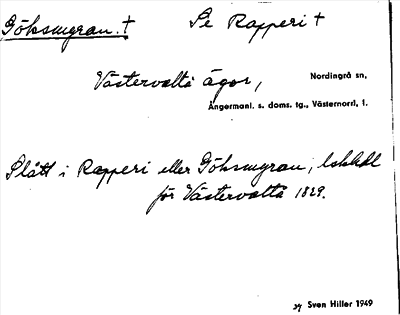 Göksmyran. † Se Rapperi †
Västervalta ägor, Nordingrå sn,
Ångermanl. s. doms. tg., Västernorrl. l.
Slått i Rapperi eller Göksmyran, lskhdl
för Västervalta 1829.
Sven Hiller 1949